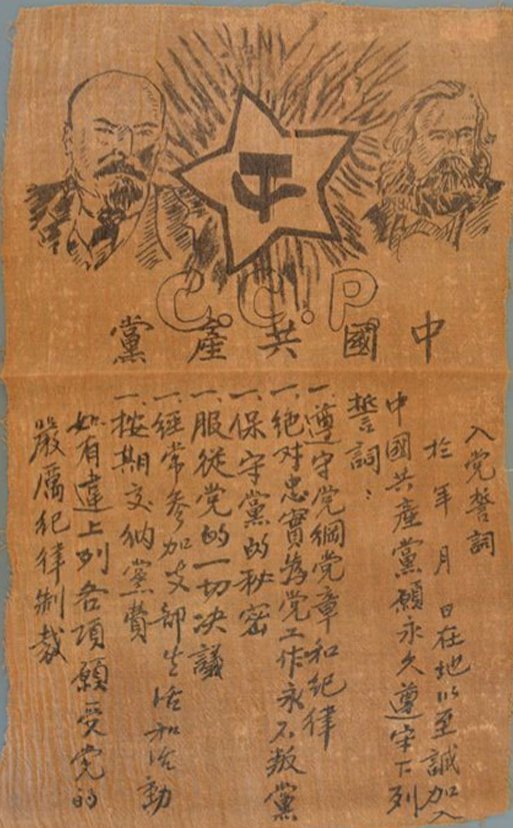 C.C.P.
中國共產黨
入党誓詞
於 年 月 日在地以至誠加入
中國共產黨願永久遵守下列
誓詞：
一遵守党綱党章和紀律
一、绝对忠實為党工作永不叛黨
一、保守黨的秘密
一、服從党的一切决議
一、經常參加支部生活和活動
一、按期交納黨費
如有違上列各項願受党的
嚴厲紀律制裁